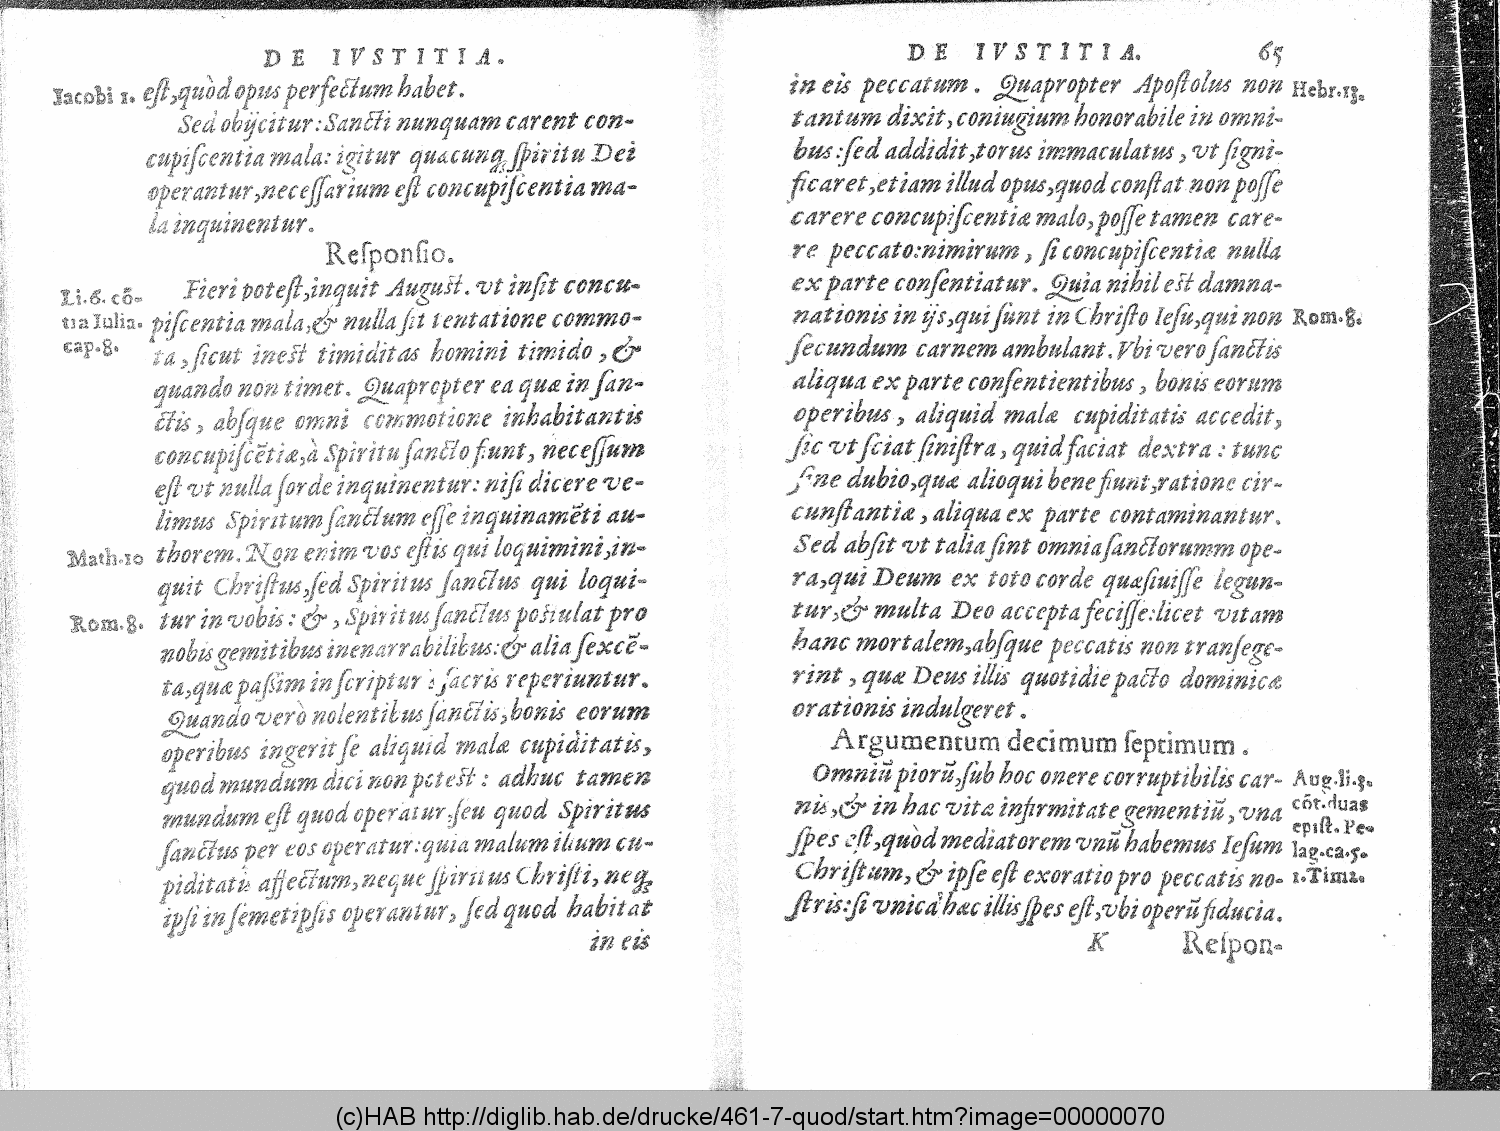 DE IVSTITIA.
Iacobi 1. eſt,quòd opus perfectum habet.
Sed obijcitur:Sancti nunquam carent con-
cupiſcentia mala: igitur quacunq; ſpiritu Dei
operantur,neceſſarium eſt concupiſcentia ma-
la inquinentur.
Reſponſio.
Fieri poteſt,inquit Auguſt. vt inſit concu-
Li.6. cõ-
tra Iulia.
cap.8.
piſcentia mala,& nulla ſit tentatione commo-
ta, ſicut ineſt timiditas homini timido, &
quando non timet. Quapropter ea quæ in ſan-
ctis, abſque omni commotione inhabitantis
concupiſcẽtiæ,à Spiritu ſancto fiunt, neceſſum
eſt vt nulla ſorde inquinentur: niſi dicere ve-
limus Spiritum ſanctum eſſe inquinamẽti au-
Math.10 thorem. Non enim vos eſtis qui loquimini,in-
quit Chriſtus,ſed Spiritus ſanctus qui loqui-
Rom.8. tur in vobis: &, Spiritus ſanctus poſtulat pro
nobis gemitibus inenarrabilibus:& alia ſexcẽ-
ta,quæ paſsim in ſcripturis ſacris reperiuntur.
Quando verò nolentibus ſanctis,bonis eorum
operibus ingerit ſe aliquid malæ cupiditatis,
quod mundum dici non poteſt: adhuc tamen
mundum eſt quod operatur:ſeu quod Spiritus
ſanctus per eos operatur:quia malum illum cu-
piditatis affectum,neque ſpiritus Chriſti, neq;
ipſi in ſemetipſis operantur, ſed quod habitat
in eis
DE IVSTITIA. 65
in eis peccatum. Quapropter Apoſtolus non Hebr.13.
tantum dixit,coniugium honorabile in omni-
bus:ſed addidit,torus immaculatus, vt ſigni-
ficaret,etiam illud opus,quod conſtat non poſſe
carere concupiſcentiæ malo,poſſe tamen care-
re peccato:nimirum, ſi concupiſcentiæ nulla
ex parte conſentiatur. Quia nihil eſt damna-
nationis in ijs,qui ſunt in Chriſto Ieſu,qui non Rom.8.
ſecundum carnem ambulant. Vbi vero ſanctis
aliqua ex parte conſentientibus, bonis eorum
operibus, aliquid malæ cupiditatis accedit,
ſic vt ſciat ſiniſtra, quid faciat dextra: tunc
ſine dubio,quæ alioqui bene fiunt,ratione cir-
cunſtantiæ, aliqua ex parte contaminantur.
Sed abſit vt talia ſint omnia ſanctorumm ope-
ra,qui Deum ex toto corde quæſiuiſſe legun-
tur,& multa Deo accepta feciſſe:licet vitam
hanc mortalem,abſque peccatis non tranſege-
rint, quæ Deus illis quotidie pacto dominicæ
orationis indulgeret.
Argumentum decimum ſeptimum.
Omniũ piorũ,ſub hoc onere corruptibilis car- Aug.li.3.
nis,& in hac vitæ infirmitate gementiũ, vna cõt.duas
epiſt. Pe-
ſpes eſt,quòd mediatorem vnũ habemus Ieſum lag.ca.5.
Chriſtum,& ipſe eſt exoratio pro peccatis no- 1.Tim2.
ſtris:ſi vnica hæc illis ſpes eſt,vbi operũ fiducia.
K Reſpon-
(c)HAB http://diglib.hab.de/drucke/461-7-quod/start.htm?image=00000070